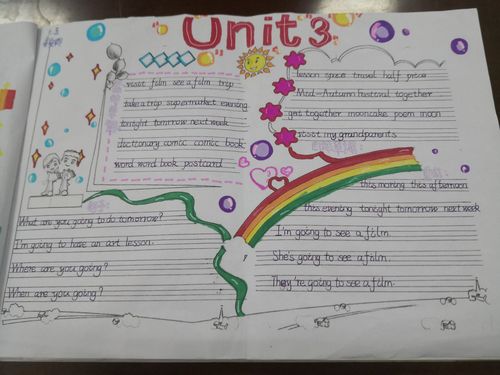 Unit 3
visit film see a film trip
take a trip supermarket evening
tonight tomorrow next week
dictionary comic comic book
word word book postcard
lesson space travel half price
Mid-Autumn Festival together
get together mooncake poem moon
visit my grandparents
What are you going to do tomorrow?
I'm going to have an art lesson.
Where are you going?
When are you going?
this morning this afternoon
this evening tonight tomorrow next week
I'm going to see a film.
She's going to see a film.
They're going to see a film.